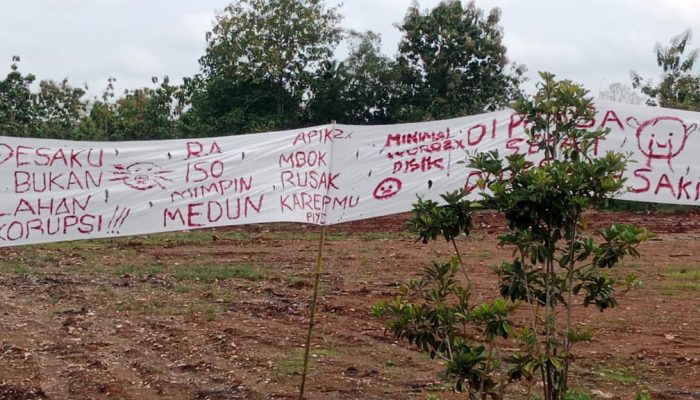 DESAKU
BUKAN
LAHAN
KORUPSI!!!
RA
ISO
MIMPIN
MEDUN
APIK2X
MBOK
RUSAK
KAREPMU
PIYE
MINIMAL
DISIK
DIPAKSA
SEHAT
SAKI